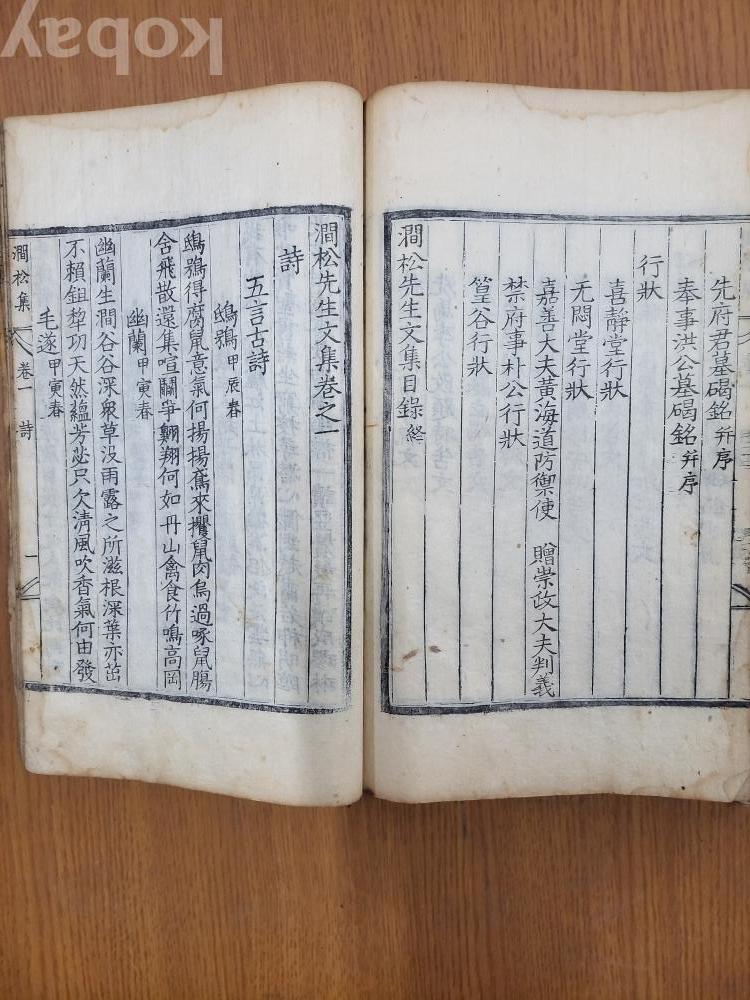 先府君墓碣銘 并序
奉事洪公墓碣銘 并序
行狀
喜靜堂行狀
无悶堂行狀
嘉善大夫黃海道防禦使 贈崇政大夫判義
禁府事朴公行狀
篁谷行狀
澗松先生文集目錄 終
澗松先生文集卷之一
詩
五言古詩
鴟鴉 甲辰春
鴟鴉得腐鼠意氣何揚揚鳶來攫鼠肉烏過啄鼠腸
舍飛散還集喧鬪爭翺翔何如丹山禽食竹鳴高岡
幽蘭 甲寅春
幽蘭生澗谷谷深衆草沒雨露之所滋根深葉亦茁
不賴鉏犂功天然蘊芳苾只欠淸風吹香氣何由發
毛遂 甲寅春
澗松集 卷一 詩 一
kobay